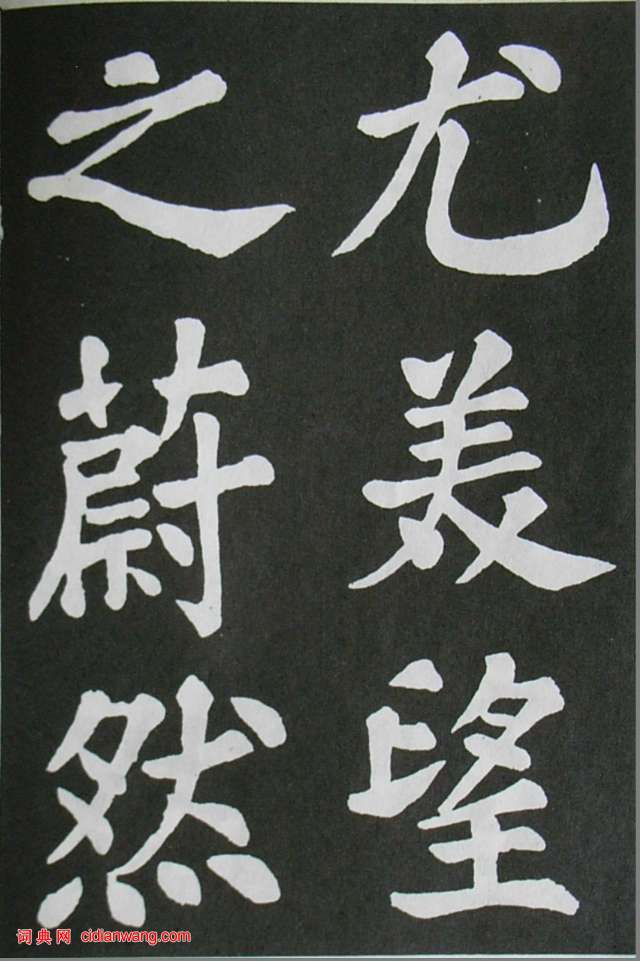 尤美望
之蔚然
词典网 cidianwang.com